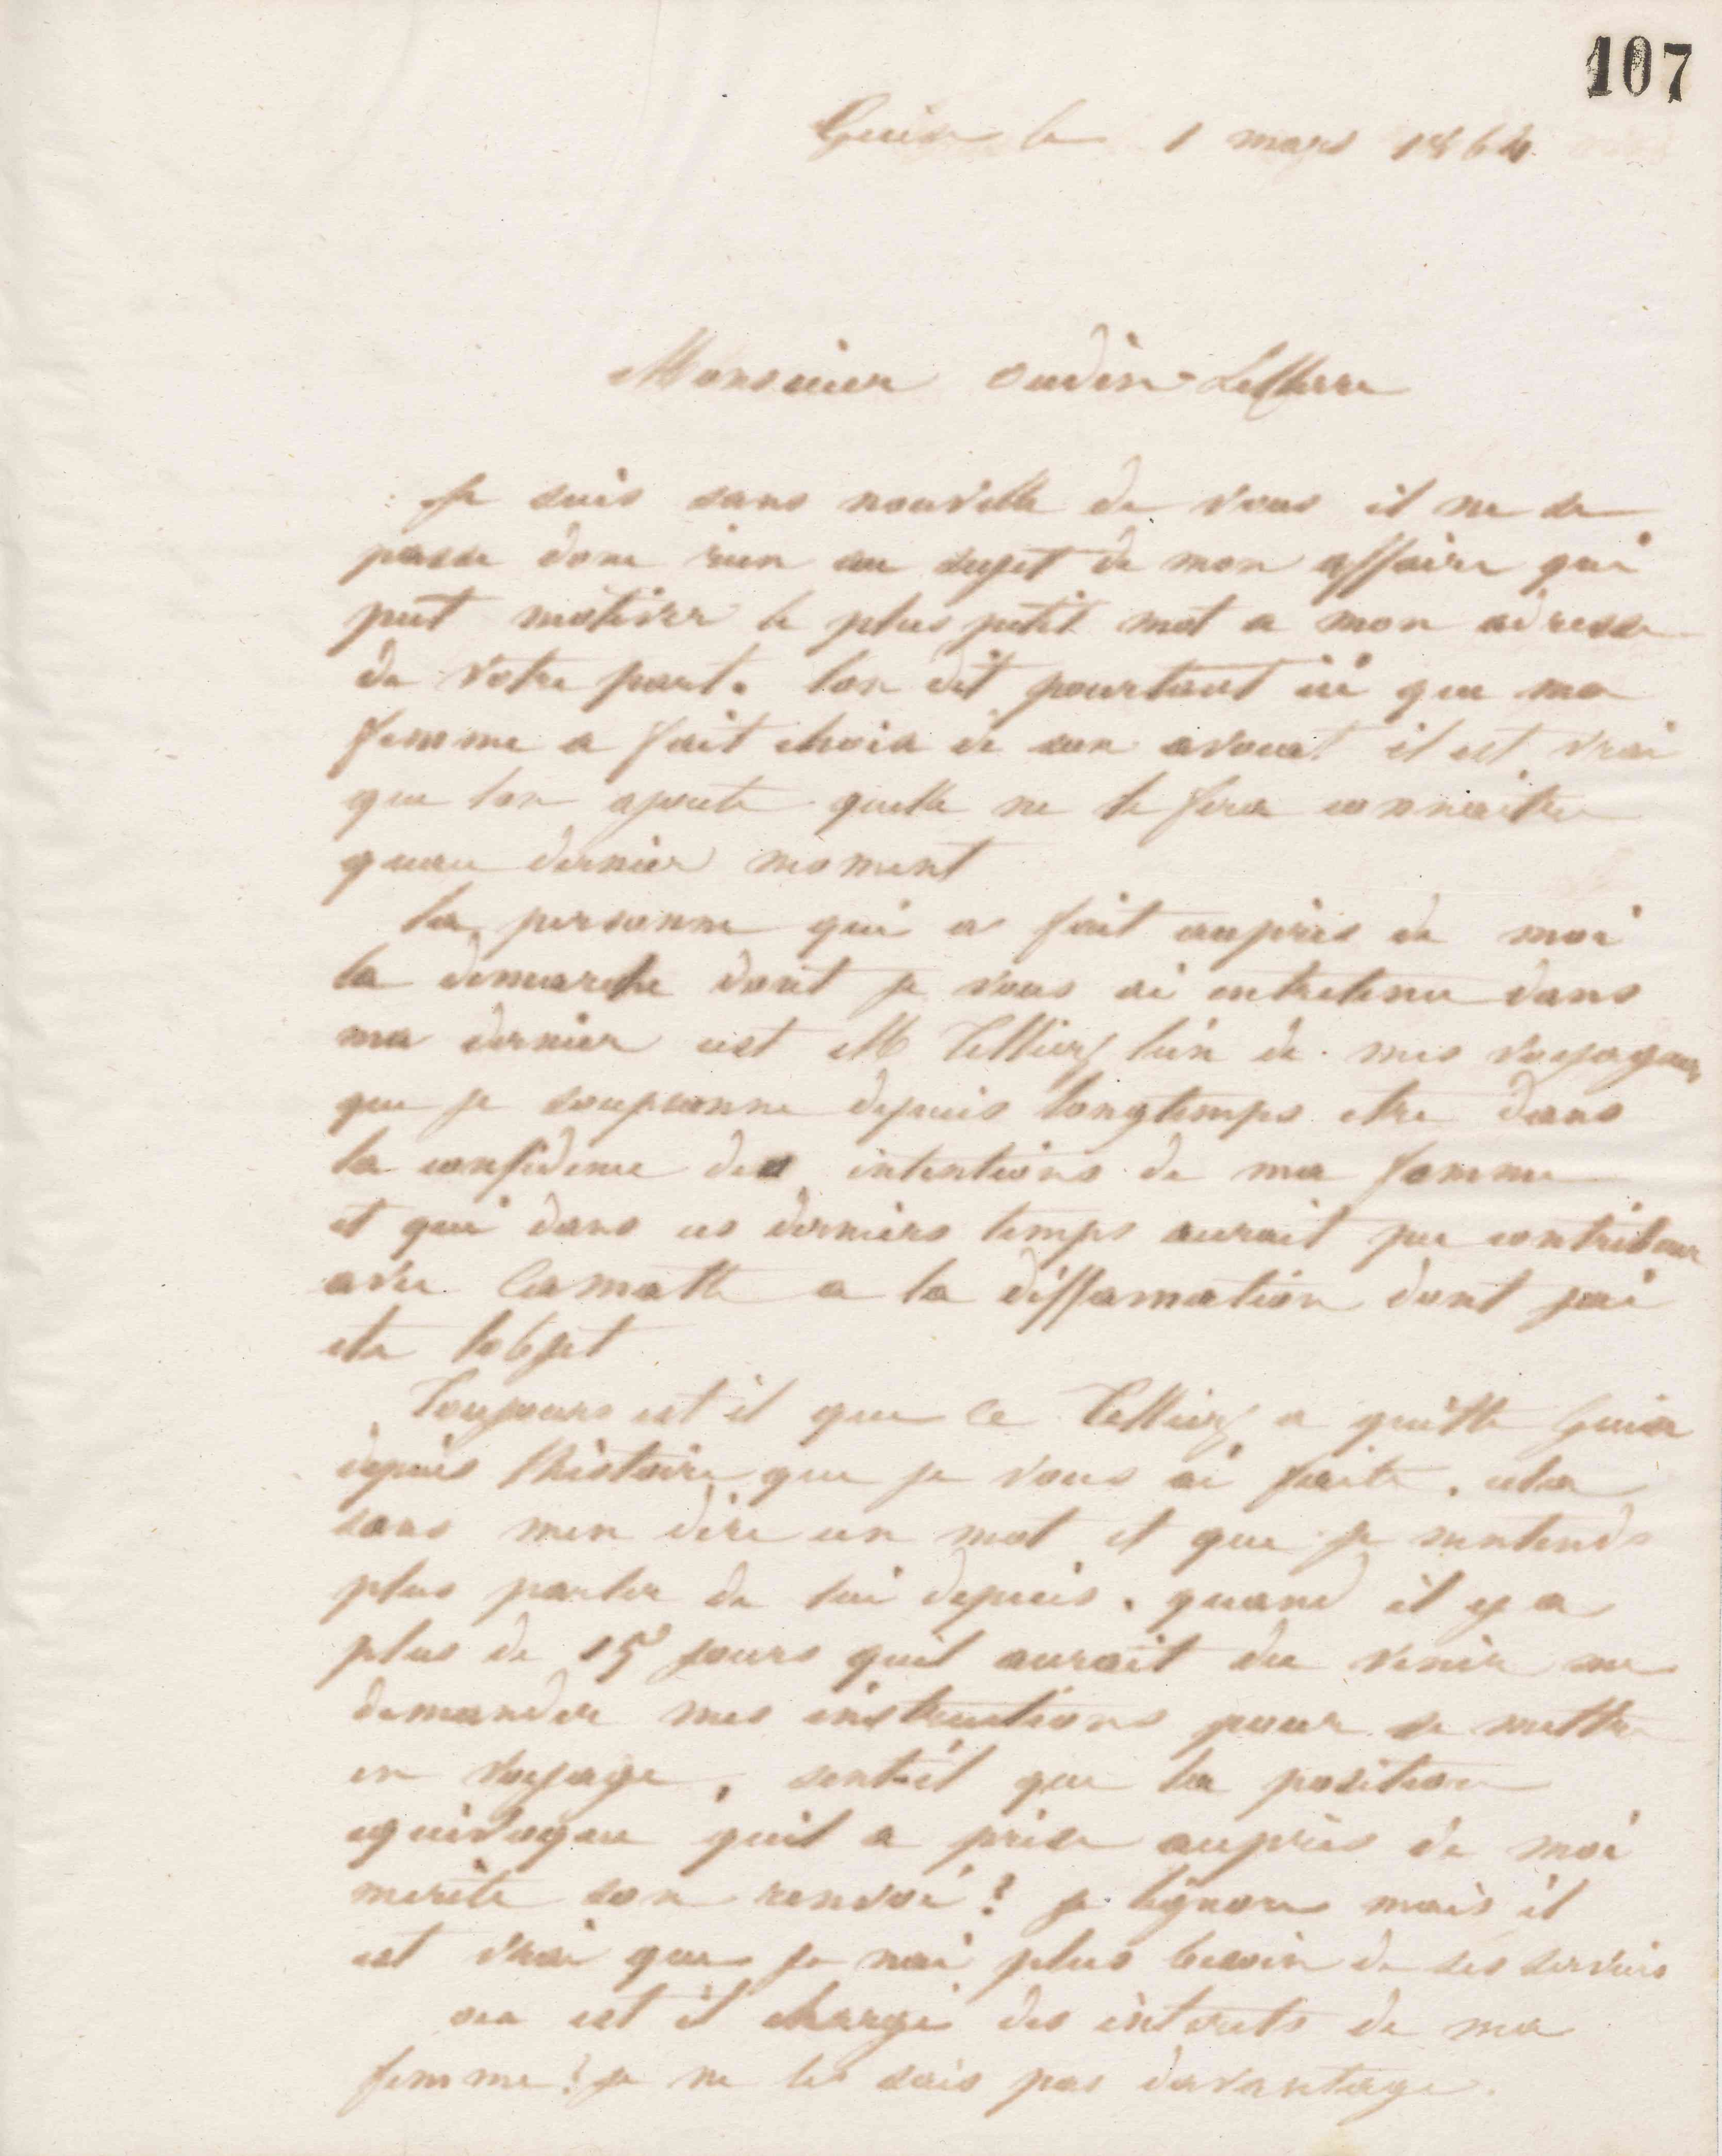 107
Guise le 1 mars 1864
Monsieur Oudin-Leclerre
Je suis sans nouvelle de vous il ne se
passe donc rien au sujet de mon affaire qui
put motiver le plus petit mot a mon adresse
de votre part. lon dit pourtant ici que ma
femme a fait choix de son avouat il est vrai
que lon ajoute quelle ne le fera connaitre
quau dernier moment
la personne qui a fait auprès de moi
la demarche dont je vous ai entretenu dans
ma dernier est M Telliez lun de mes voyageurs
que je soupconne depuis longtemps etre dans
la confidence des intentions de ma femme
et qui dans ces derniers temps aurait pu contribuer
avec a la diffamation dont jai
ete lobjet
Toujours est il que ce Telliez a quitte Guise
depuis lhistoire que je vous ai faite. cela
sans men dire un mot et que je nentends
plus parler de lui depuis. quand il y a
plus de 15 jours quil aurait du venir me
demander mes instructions pour se mettre
en voyage, sent-il que la position
equivoque quil a prise auprès de moi
merite son renvoi? je lignore mais il
est vrai que je nai plus besoin de ses services
ou est il chargé des interets de ma
femme? je ne le sais pas davantage.